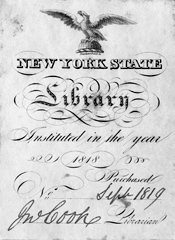 NEW YORK STATE
Library
Instituted in the year
1818
Purchased
No. Sept 1819
Jno Cook Librarian